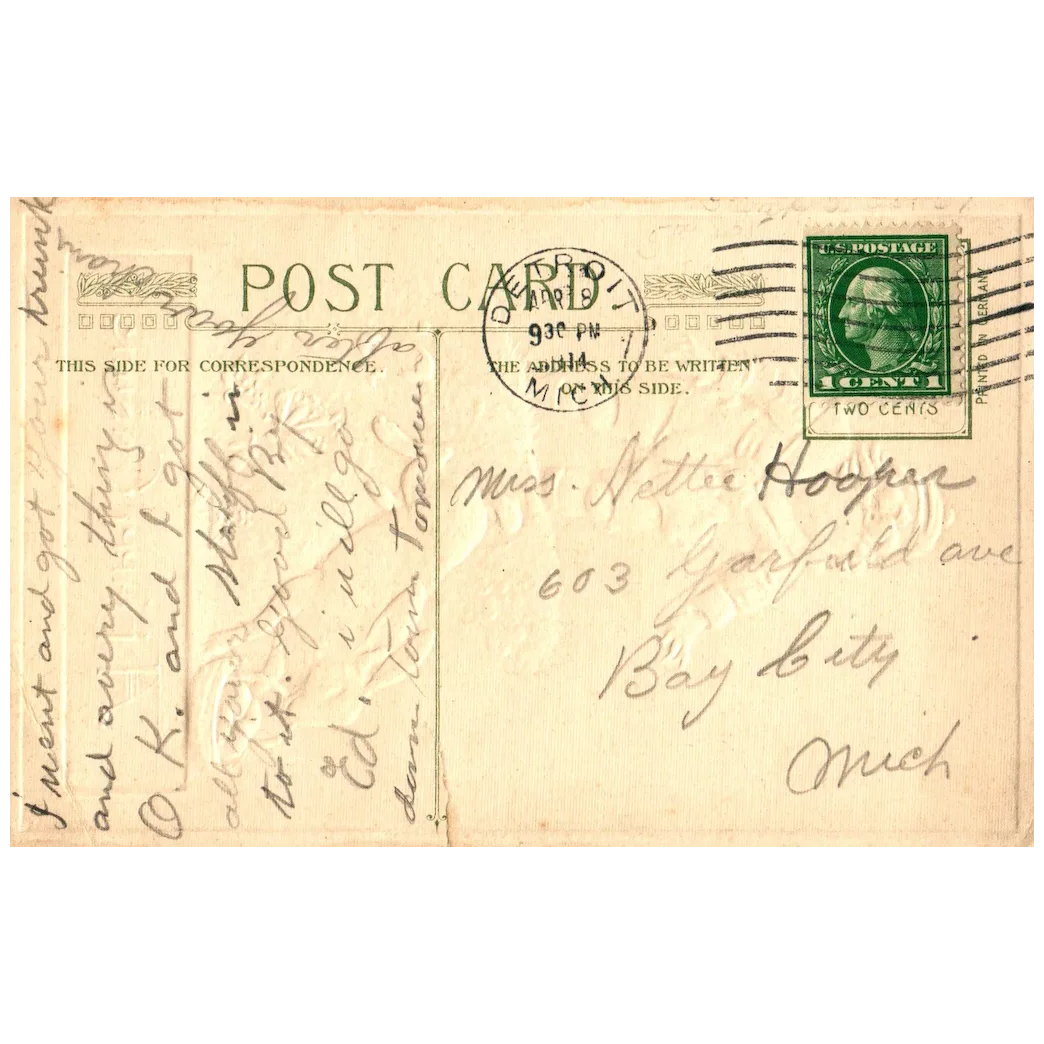 POST CARD
THIS SIDE FOR CORRESPONDENCE.
THE ADDRESS TO BE WRITTEN
ON THIS SIDE.
DETROIT
APR 8
930 PM
1914
MICH.
U.S.POSTAGE
1 CENT 1
TWO CENTS
PRINTED IN GERMANY
Miss. Nettee Hooper
603 Garfield ave
Bay City
Mich
I went and got your trunk
and avery thing in
O. K. and I got
all your stuff in
to it. good By
Ed. i will go
down town tomorrow
after your
chair